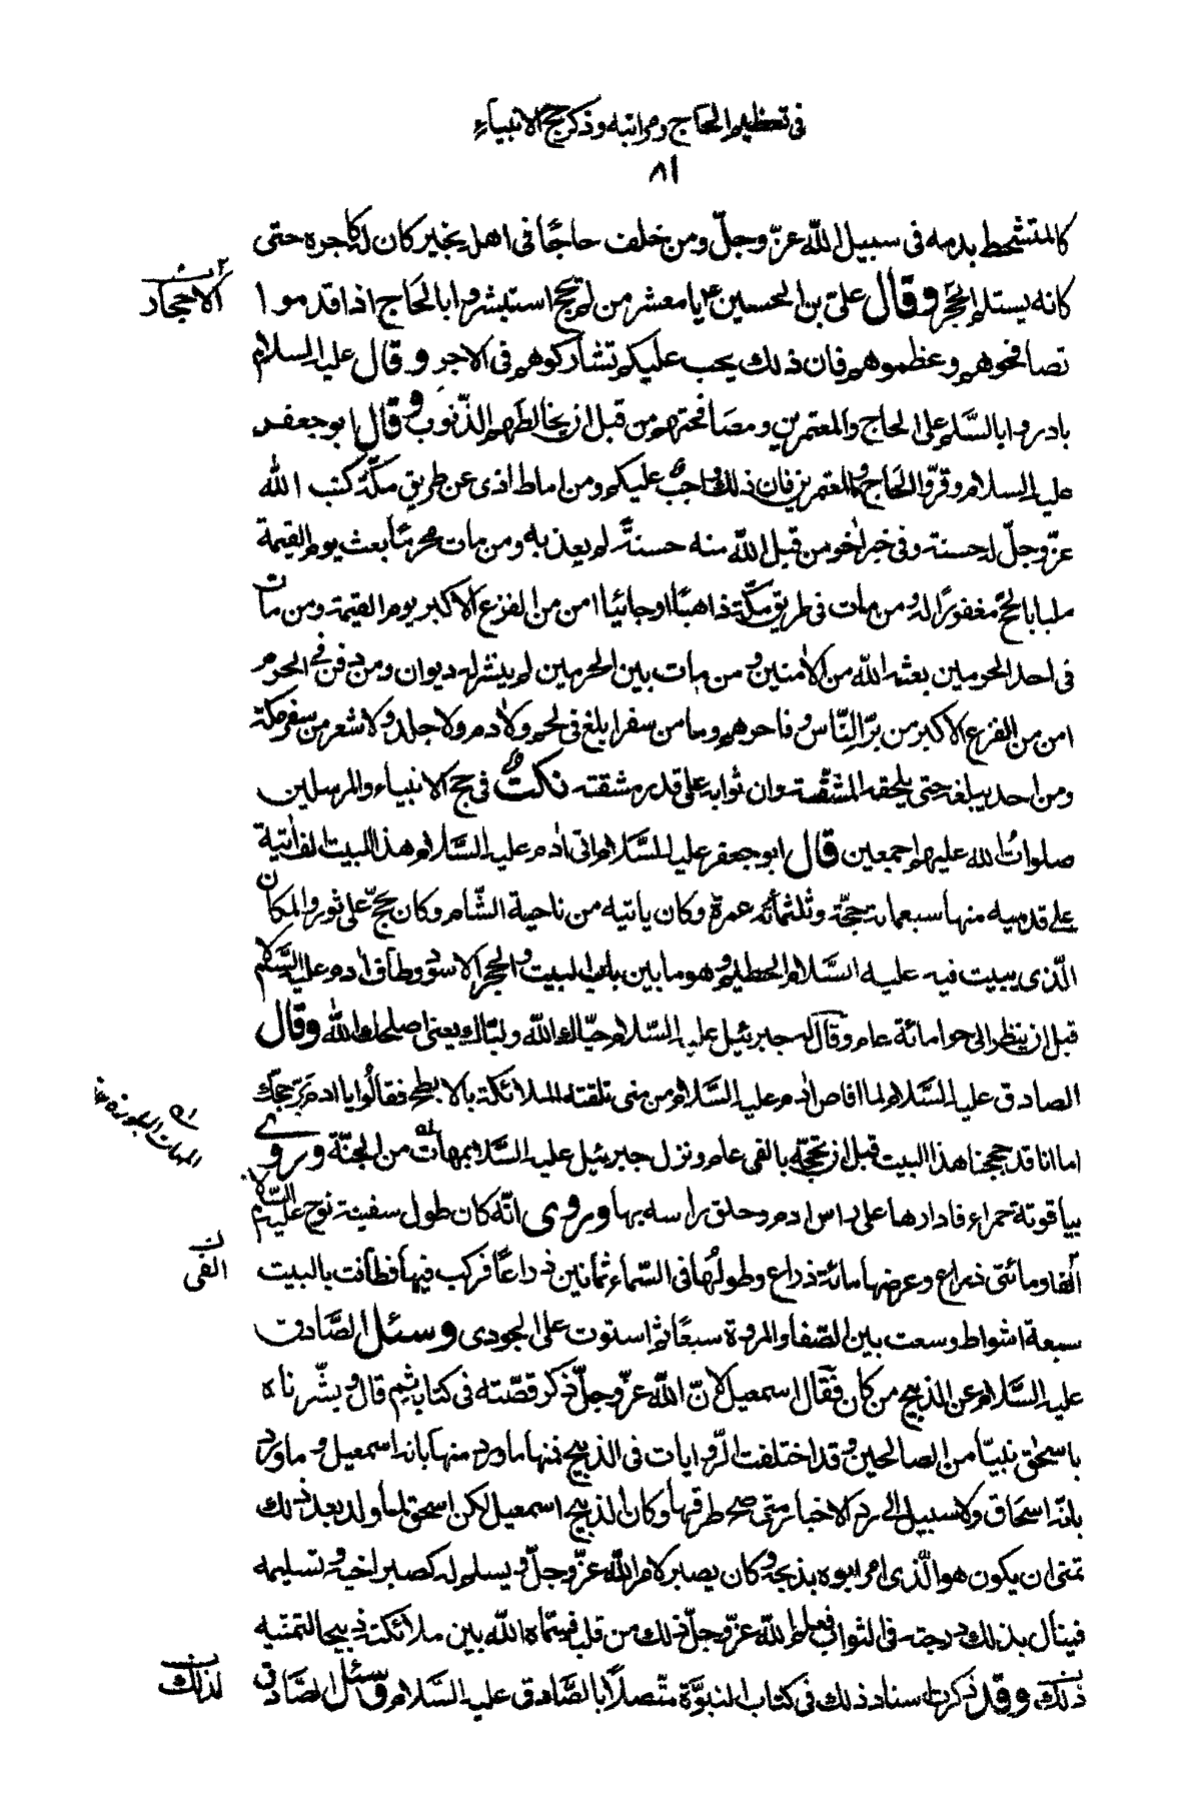 في تعظيم الحاج ومراتبه وذكر حج الانبياء
٨١
كالمتشحط بدمه في سبيل الله عزّ وجلّ ومن خلف حاجًا في اهله بخير كان له كاجره حتى
كانه يستلم الحجر وقال علىّ بن الحسين ع يا معشر من لم يحج استبشروا بالحاج اذا قدموا
الاحجار
تصافحوهم وعظموهم فان ذلك يجب عليكم تشاركوهم في الاجر وقال عليه السلام
بادروا بالسَّلام على الحاج والمعتمرين ومصافحتهم من قبل ان يخالطهم الذّنوب وقال ابو جعفر
عليه السلام وقرّوا الحاج والمعتمرين فان ذلك واجب عليكم ومن اماط اذى عن طريق مكّة كتب الله
عزّ وجلّ له حسنة وفي خبر اخر من قبل الله منه حسنةً لم يعذبه ومن مات محرمًا بعث يوم القيمة
ملبيا بالحج مغفورًا له ومن مات في طريق مكّة ذاهبًا او جائيا امن من الفزع الاكبر يوم القيمة ومن مات
في احد الحرمين بعثه الله من الآمنين ومن مات بين الحرمين لم ينشر له ديوان ومن دفن في الحرم
امن من الفزع الاكبر من برّ النّاس وفاجرهم وما من سفر ابلغ في لحم ولا دم ولا جلد ولا شعر من سفر مكة
وما من احد يبلغه حتى يلحقه المشقّة وان ثوابه على قدر مشقته نكت في حج الانبياء والمرسلين
صلوات الله عليهم اجمعين قال ابو جعفر عليه السَّلام اتى ادم عليه السَّلام هذا البيت الف اتية
على قدميه منها سبعمائة حجّة وثلثمائة عمرة وكان ياتيه من ناحية الشّام وكان يحجّ على ثور والمكان
الّذى يبيت فيه عليه السَّلام الحطيم وهو ما بين باب البيت والحجر الاسود وطاف ادم عليه السَّلام
قبل ان ينظر الى حوا مائة عام وقال له جبرئيل عليه السّلام حيّاك الله وليّاك يعنى اصلحك الله وقال
الصادق عليه السَّلام لما افاض ادم عليه السَّلام من منى تلقته الملائكة بالابطح فقالوا يا ادم برّ حجّك
اما انا قد حججنا هذا البيت قبل ان تحجّه بالفى عام ونزل جبرئيل عليه السَّلام بمهاة من الجنّة وروى
بياقوتة حمراء فادارها على راس ادم وحلق راسه بها وروى انّه كان طول سفينة نوح عليه السّلام
الفا ومائتى ذراع وعرضها مائة ذراع وطولها في السّماء ثمانين ذراعًا فركب فيها فطافت بالبيت
الفى
سبعة اشواط وسعت بين الصّفا والمروة سبعًا ثم استوت على الجودى وسئل الصَّادق
عليه السَّلام عن الذبيح من كان فقال اسمعيل لانّ الله عزّ وجلّ ذكر قصّته في كتابه ثم قال وبشّرناه
باسحاق نبيّا من الصالحين وقد اختلفت الرّوايات في الذبيح فمنها ما ورد منها بانه اسمعيل وما ورد
بانّه اسحاق ولا سبيل الى رد الاخبار متى صح طرقها وكان الذبيح اسمعيل لكن اسحق لما ولد بعد ذلك
تمنى ان يكون هو الّذى امر ابوه بذبحه وكان يصبر لامر الله عزّ وجلّ ويسلم له كصبر اخيه وتسليمه
فينال بذلك درجته في الثواب فعلم الله عزّ وجلّ ذلك من قلبه فسمّاه الله بين ملائكته ذبيحا لتمنيه
ذلك وقد ذكرت اسناد ذلك في كتاب النبوّة متّصلًا بالصَّادق عليه السَّلام وسئل الصَّادق
لذلك